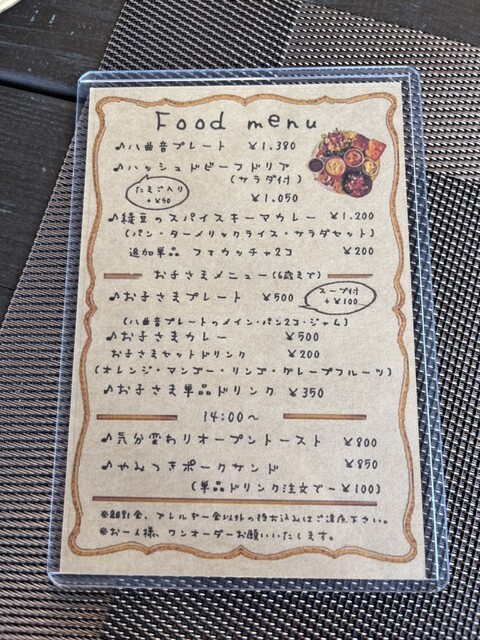 Food menu
♪八曲音プレート ¥1.380
♪ハッシュドビーフドリア
(サラダ付)
たまご入り
+¥50
¥1.050
♪緑豆のスパイスキーマカレー ¥1.200
(パン・ターメリックライス・サラダセット)
追加単品 フォカッチャ2コ ¥200
お子さまメニュー(6歳まで)
♪お子さまプレート ¥500
スープ付
+¥100
(八曲音プレートのメイン・パン2コ・ジャム)
♪お子さまカレー ¥500
お子さまセットドリンク ¥200
(オレンジ・マンゴー・リンゴ・グレープフルーツ)
♪お子さま単品ドリンク ¥350
14:00〜
♪気分変わりオープントースト ¥800
♪やみつきポークサンド ¥850
(単品ドリンク注文で-¥100)
アレルギー食以外の持ち込みはご遠慮下さい。
※お一人様、ワンオーダーお願いいたします。